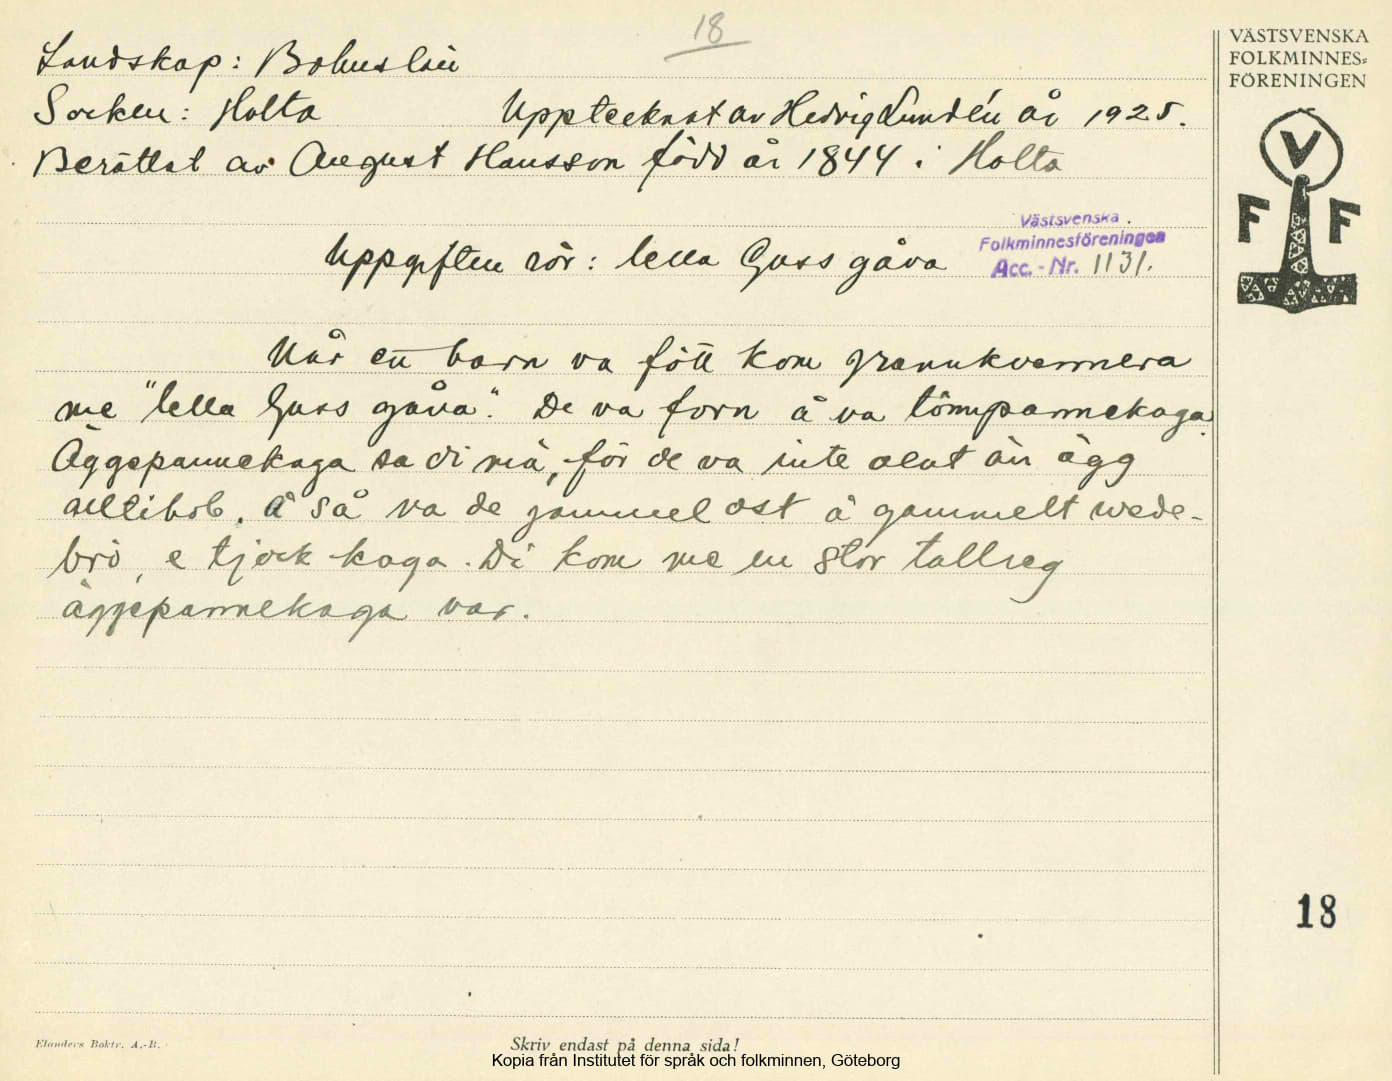 18
Landskap: Bohuslän
Socken: Holta Upptecknat av Hedvig Lundén år 1925.
Berättat av August Hansson född år 1844 i Holta
Uppgiften rör: lella Guss gåva
Västsvenska
Folkminnesföreningen
Acc. - Nr. 1131.
När ett barn va fött kom grannkvennera
me "lella Guss gåva". De va forn å va tönnpannekaga.
Äggepannekaga sa di mä, för de va inte alut än ägg
alltihob. Å så va de gammel ost å gammelt wede-
brö, e tjock kaga. Di kom me en stor tallreg
äggepannekaga var.
VÄSTSVENSKA
FOLKMINNES=
FÖRENINGEN
V
F F
18
Elanders Boktr. A.-B.
Skriv endast på denna sida!
Kopia från Institutet för språk och folkminnen, Göteborg